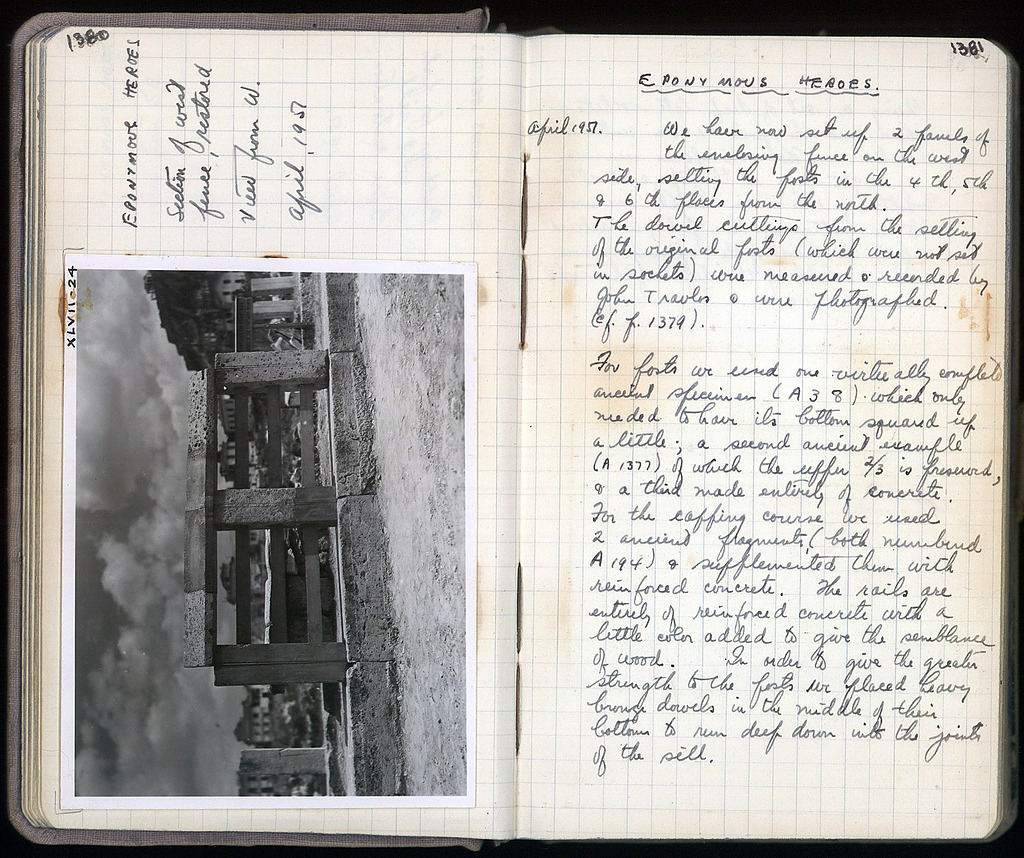 1380
EPONYMOUS HEROES
Section of west
fence, restored
View from W.
April, 1951
XLVII-24
1381
EPONYMOUS HEROES.
April 1951. We have now set up 2 panels of
the enclosing fence on the west
side, setting the posts in the 4th, 5th
& 6th places from the north.
The dowel cuttings from the setting
of the original posts (which were not set
in sockets) were measured & recorded by
John Travlos & were photographed.
(cf. p. 1379).
For posts we used one virtually complete
ancient specimen (A 38) which only
needed to have its bottom squared up
a little; a second ancient example
(A 1377) of which the upper 2/3 is preserved,
& a third made entirely of concrete.
For the capping course we used
2 ancient fragments (both numbered
A 194) & supplemented them with
reinforced concrete. The rails are
entirely of reinforced concrete with a
little color added to give the semblance
of wood. In order to give the greater
strength to the posts we placed heavy
bronze dowels in the middle of their
bottoms to run deep down into the joints
of the sill.